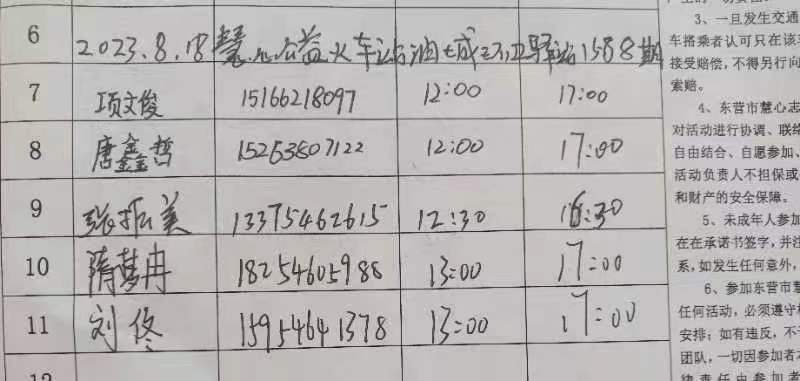 6 2023.8.18慧心公益火车站油城环卫驿站1588期
7 项文俊 15166218097 12:00 17:00
8 唐鑫哲 15263807122 12:00 17:00
9 张振美 13375462615 12:30 16:30
10 隋梦冉 18254605988 13:00 17:00
11 刘佟 15954641378 13:00 17:00
3、一旦发生交通
车搭乘者认可只在该
接受赔偿，不得另行向
索赔。
4、东营市慧心志
对活动进行协调、联络
自由结合、自愿参加、
活动负责人不担保或
和财产的安全保障。
5、未成年人参加
在在承诺书签字，并注
系，如发生任何意外，
6、参加东营市慧
任何活动，必须遵守
安排；如有违反，不
团队，一切因参加者
律责任由参加者